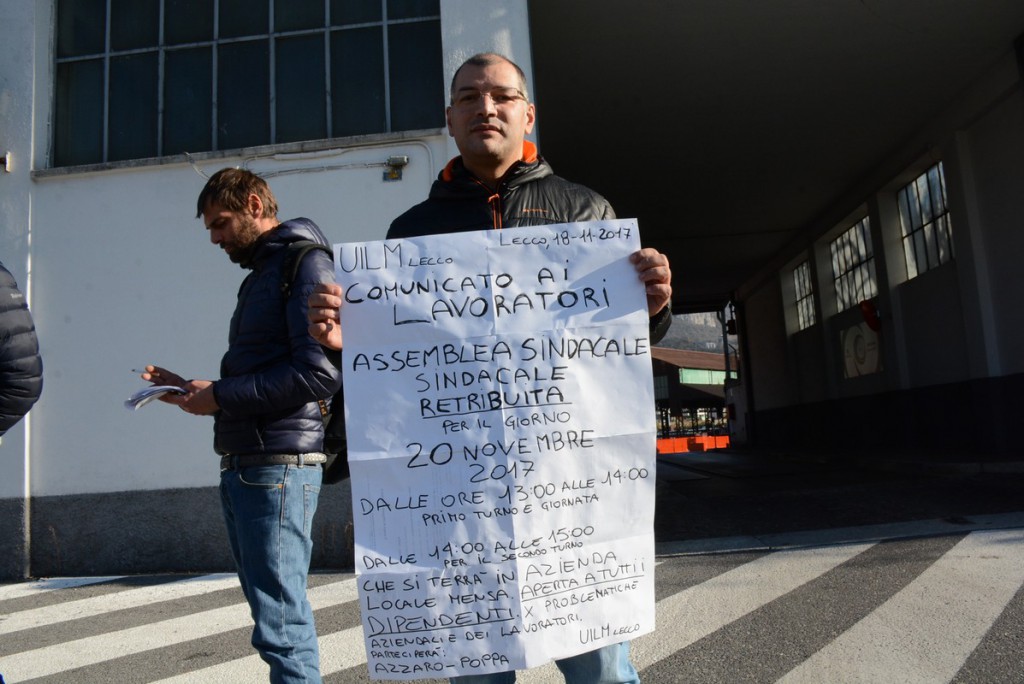 UILM LECCO
LECCO, 18-11-2017
COMUNICATO Ai
LAVORATORi
ASSEMBLEA SINDACALE
SINDACALE
RETRIBUITA
PER IL GIORNO
20 NOVEMBRE
2017
DALLE ORE 13:00 ALLE 14:00
PRIMO TURNO E GIORNATA
DALLE 14:00 ALLE 15:00
PER IL SECONDO TURNO
CHE SI TERRA' IN AZIENDA
LOCALE MENSA. APERTA A TUTTI i
DIPENDENTI. X PROBLEMATICHE
AZIENDALI E DEI LAVORATORI.
PARTECIPERÀ:
UILM LECCO
AZZARO-POPPA